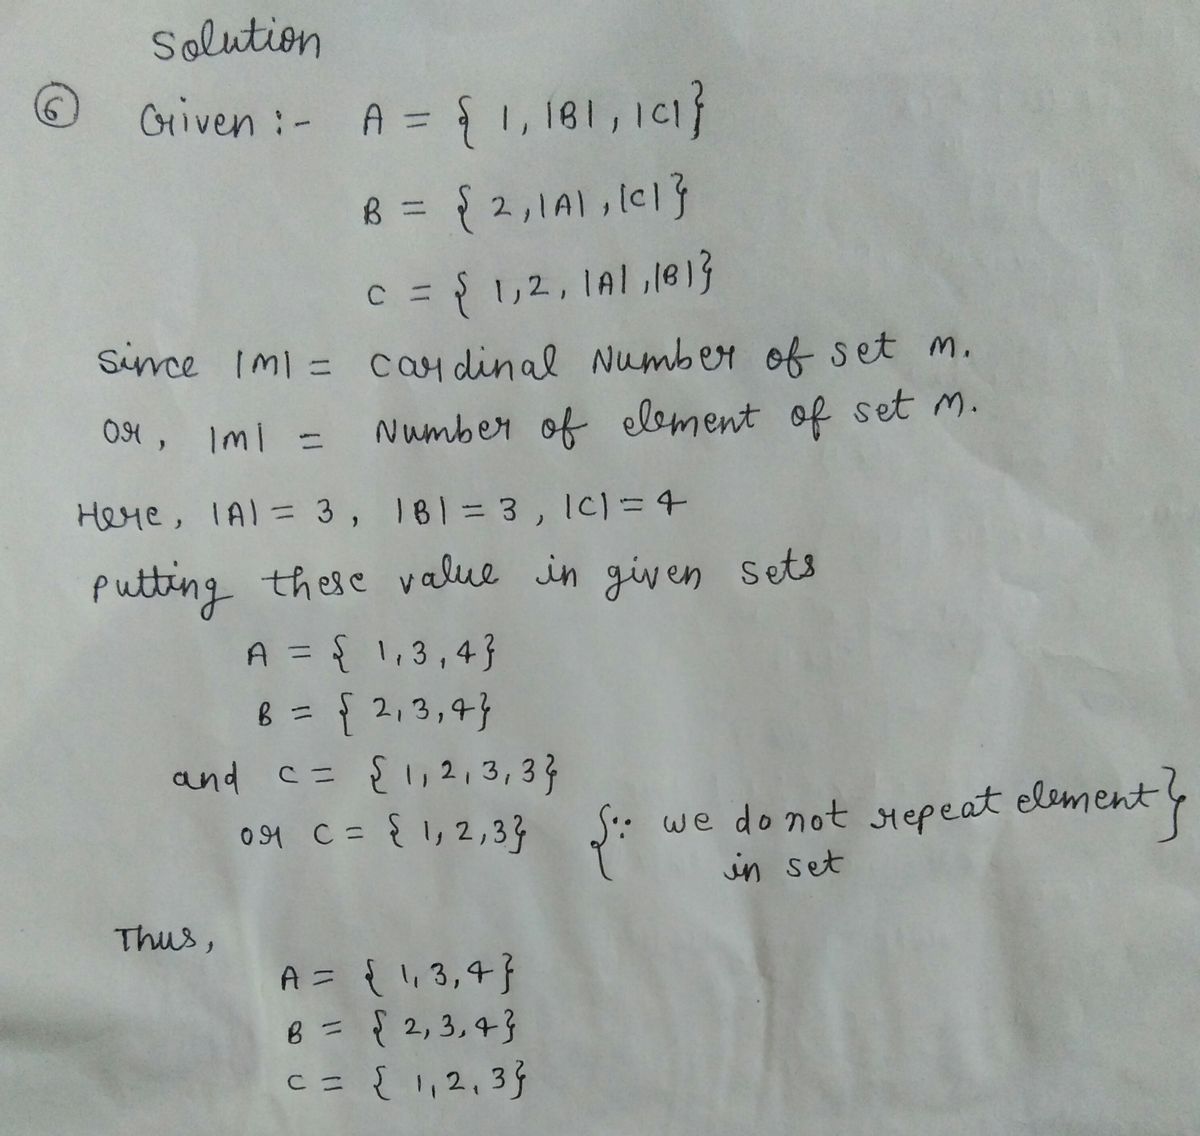 Solution
⑥ Given :- A = { 1, |B|, |C|}
B = { 2, |A|, |C|}
C = { 1,2, |A|, |B|}
Since |M| = Cardinal Number of set M.
or, |M| = Number of element of set M.
Here, |A| = 3, |B| = 3, |C| = 4
putting these value in given sets
A = { 1,3,4}
B = { 2,3,4}
and C = { 1,2,3,3}
or C = { 1,2,3} {∵ we do not repeat element}
in set
Thus,
A = { 1,3,4}
B = { 2,3,4}
C = { 1,2,3}